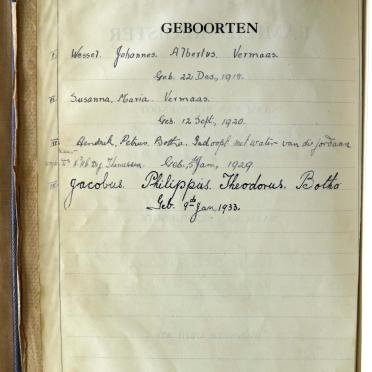 GEBOORTEN
I. Wessel. Johannes. Albertus. Vermaas.
Geb. 22 Des., 1918.
II. Susanna, Maria. Vermaas.
Geb. 12 Sept., 1920.
III. Hendrik, Petrus. Botha. Gedoopt met water van de Jordaan
Geb. 5 Jan, 1929.
Jacobus. Philippus. Theodorus. Botha
Geb. 9de Jan 1933.